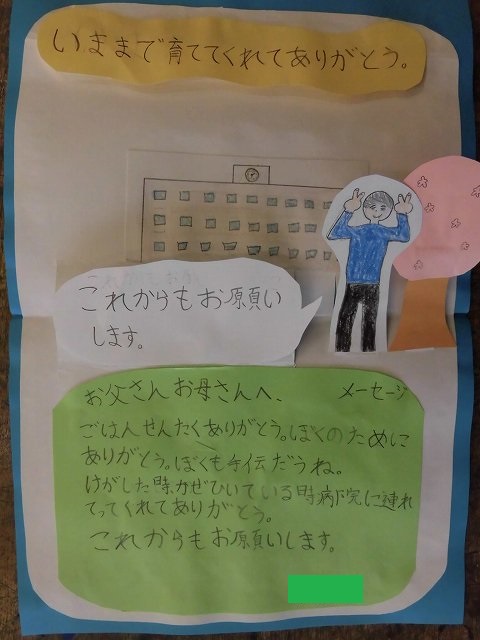 いままで育ててくれてありがとう。
これからもお原頁い
します。
お父さんお母さんへ、
メーセージ
ごはんせんたくありがとう。ぼくのために
ありがとう。ぼくも手伝だうね。
けがした時、かぜひいている時病院に連れ
てってくれてありがとう。
これからもお願いします。